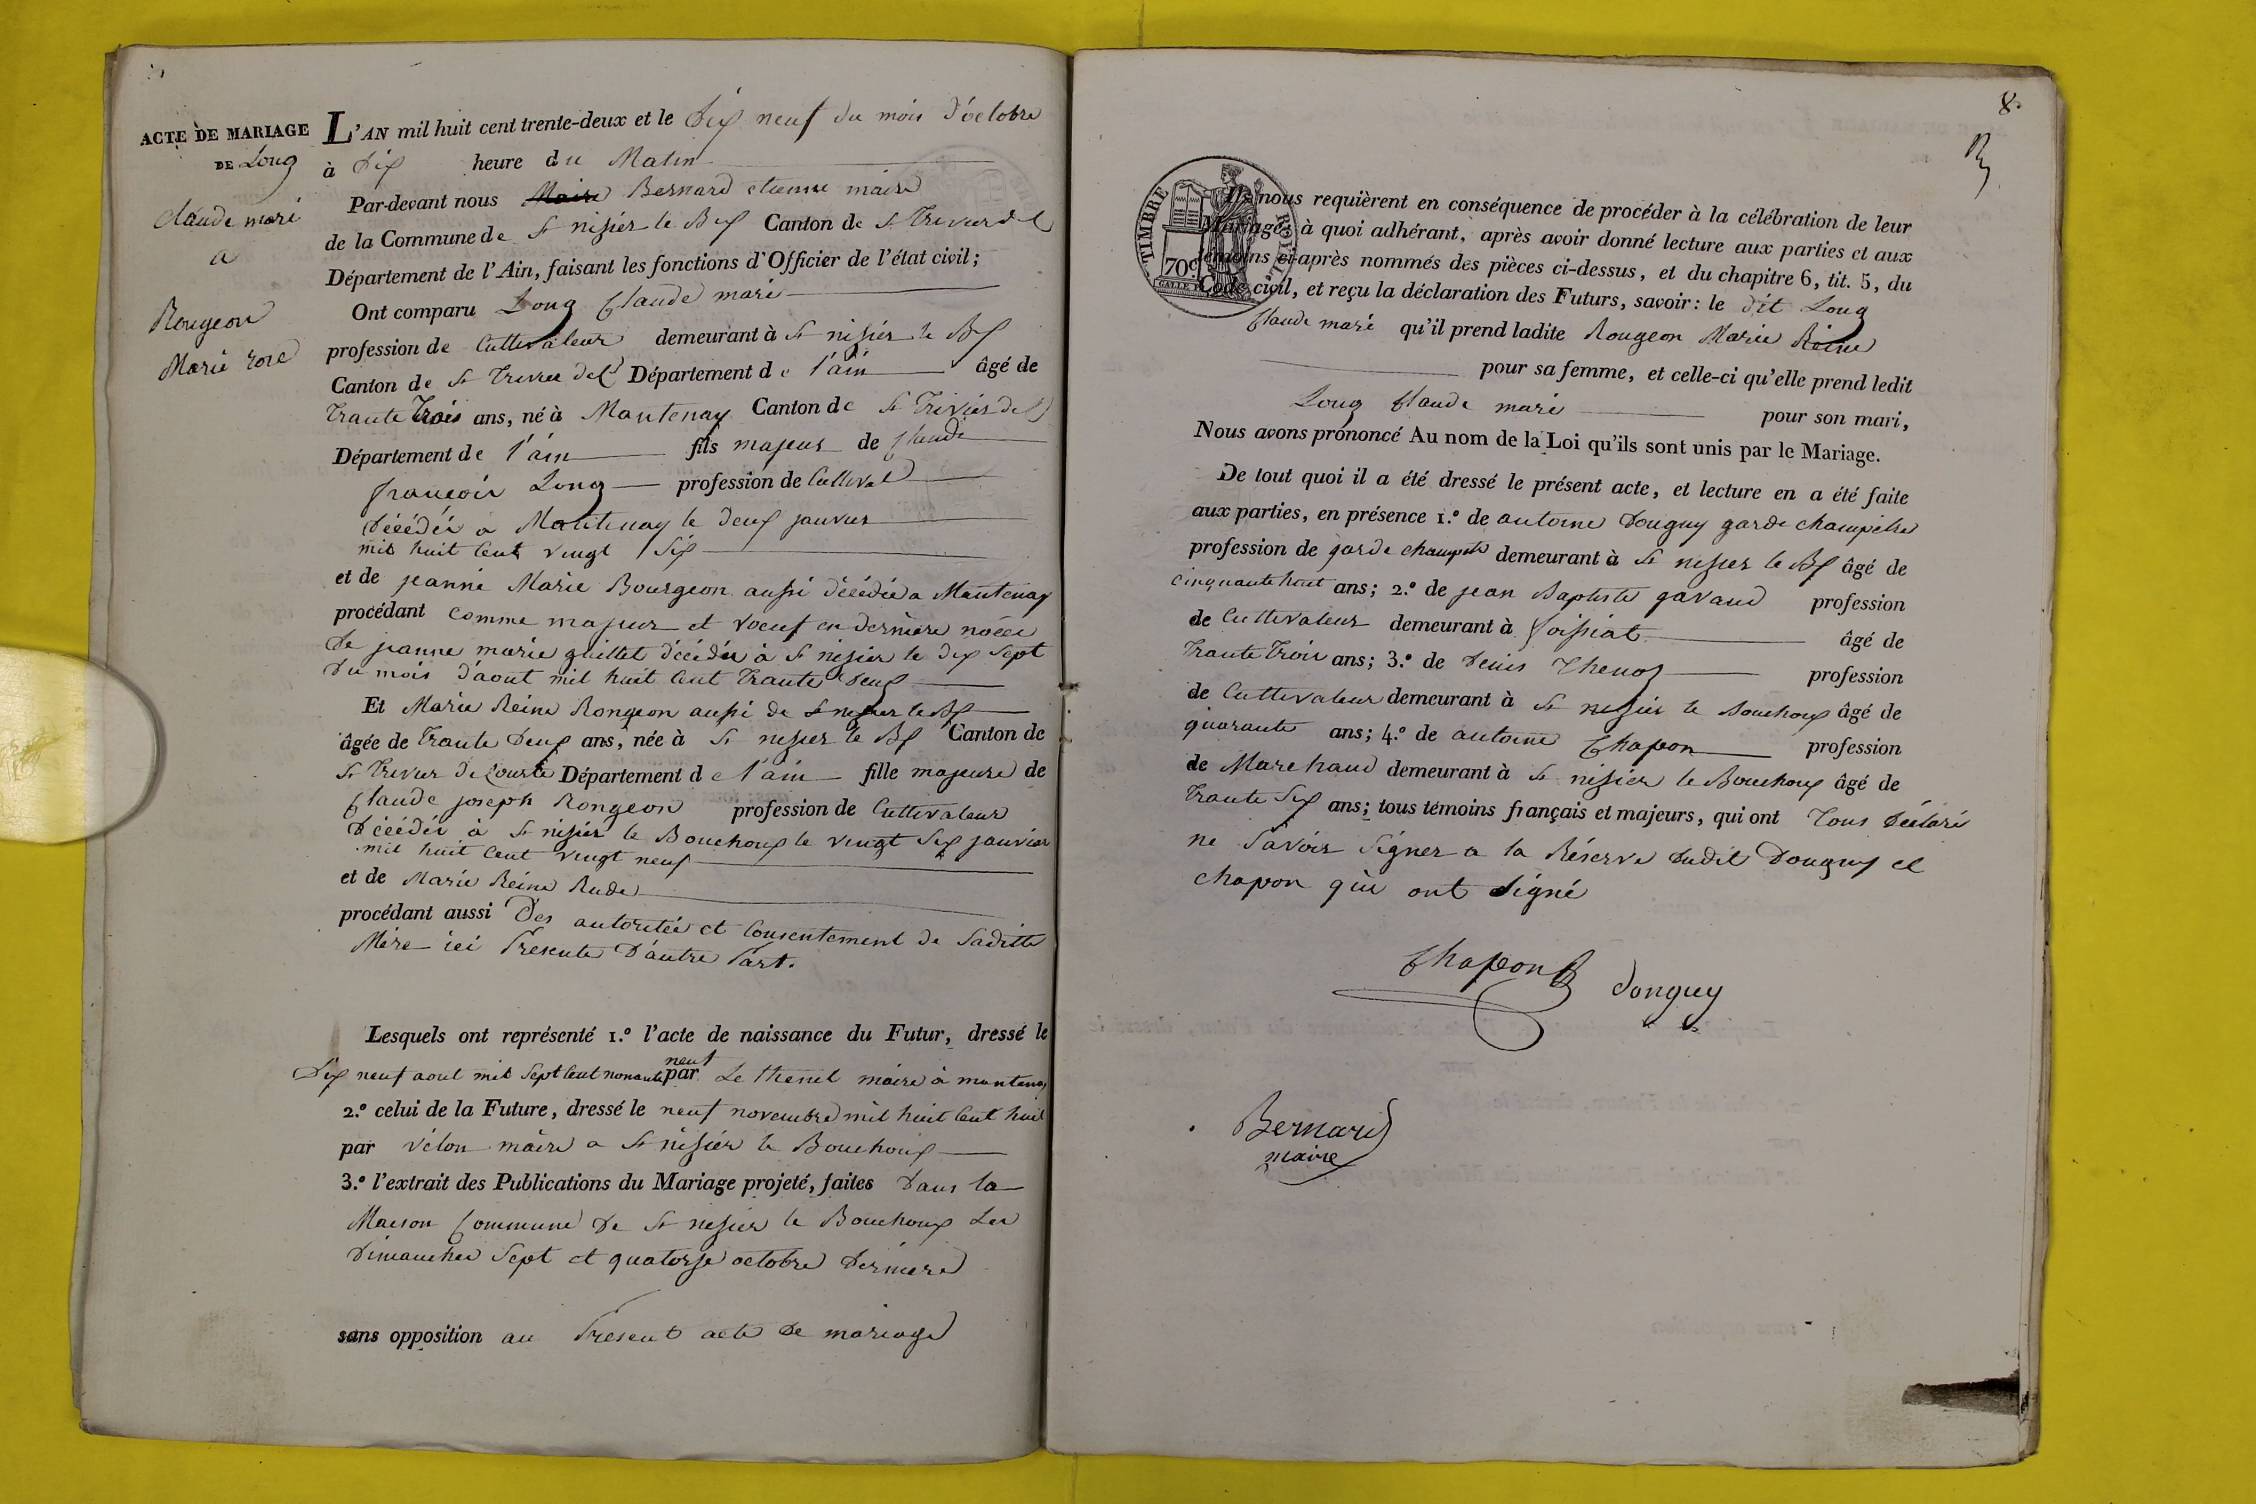 ACTE DE MARIAGE
DE Long
Claude marie
a
Rongeon
Marie rose
L'AN mil huit cent trente-deux et le Dix neuf du mois d'octobre
à Dix heure du Matin
Par-devant nous Maire Bernard etienne maire
de la Commune de St nisier le Bx Canton de St Trivier de C
Département de l'Ain, faisant les fonctions d'Officier de l'état civil;
Ont comparu Long Claude marie
profession de Cultivateur demeurant à St nisier le Bx
Canton de St Trivier de C Département de l'ain âgé de
Trante Trois ans, né à Mantenay Canton de St Trivier de C
Département de l'ain fils majeur de Claude
françois Long profession de Cultivat
Décédée a Mantenay le deux janvier
mil huit Cent vingt Six
et de jeanne Marie Bourgeon aussi décédée a Mantenay
procédant comme majeur et voeuf en dernière nocee
De jeanne marie guillet décédée à St nisier le dix Sept
Du mois d'aout mil huit Cent Trante Deux
Et Marie Reine Rongeon aussi de St nisier le Bx
âgée de Trante Deux ans, née à St nisier le Bx Canton de
St Trivier De Courte Département de l'ain fille majeure de
Claude joseph Rongeon profession de Cultivateur
Décédée à St nisier le Bouchoux le vingt Six janvier
mil huit Cent vingt neuf
et de Marie Reine Rude
procédant aussi Des autoritée et Consentement de Saditte
Mère ici Présente D'autre Part.
Lesquels ont représenté 1.º l'acte de naissance du Futur, dressé le
Dix neuf aout mil Sept Cent nonante neuf par Le thenil maire à mantenay
2.º celui de la Future, dressé le neuf novembre mil huit Cent huit
par vélon maire a St nisier le Bouchoux
3.º l'extrait des Publications du Mariage projeté, faites Dans la
Maison Commune De St nisier le Bouchoux Les
Dimanches Sept et quatorze octobre Dernière
sans opposition au Présent acte De mariage
8.
TIMBRE ROYAL
70c
Ils nous requièrent en conséquence de procéder à la célébration de leur
Mariage; à quoi adhérant, après avoir donné lecture aux parties et aux
témoins ci-après nommés des pièces ci-dessus, et du chapitre 6, tit. 5, du
Code civil, et reçu la déclaration des Futurs, savoir: le dit Long
Claude marie qu'il prend ladite Rongeon Marie Reine
pour sa femme, et celle-ci qu'elle prend ledit
Long Claude marie pour son mari,
Nous avons prononcé Au nom de la Loi qu'ils sont unis par le Mariage.
De tout quoi il a été dressé le présent acte, et lecture en a été faite
aux parties, en présence 1.º de antoine Donguy garde champêtre
profession de garde champetr demeurant à St nisier le Bx âgé de
cinquante huit ans; 2.º de jean Baptiste gavand profession
de Cultivateur demeurant à foissiat âgé de
Trante Trois ans; 3.º de Denis Thenoz profession
de Cultivateur demeurant à St nisier le Bouchoux âgé de
quarante ans; 4.º de antoine Chapon profession
de Marchand demeurant à St nisier le Bouchoux âgé de
Trante Six ans; tous témoins français et majeurs, qui ont Tous Déclaré
ne Savoir Signer a la Réserve Dudit Donguy et
chapon qui ont Signé
Chapon
donguy
Bernard
maire